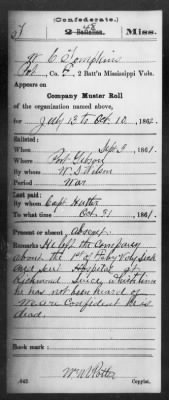 (Confederate.)
T 2 48 Battalion. Miss.
W. C. Tompkins
Pvt, Co. F, 2 Batt'n Mississippi Vols.
Appears on
Company Muster Roll
of the organization named above,
for July 13 to Oct 10, 1862.
Enlisted:
When Sept 3, 1861.
Where Port Gibson
By whom W. S. Wilson
Period War
Last paid:
By whom Capt
To what time Oct 31, 1861.
Present or absent, absent
Remarks: He left the Company
about the 1st of July sick
and sent Hospital at
Richmond Since which time
he has not been heard of
We are Confident he is
dead.
Book mark:
(642)
Copyist.